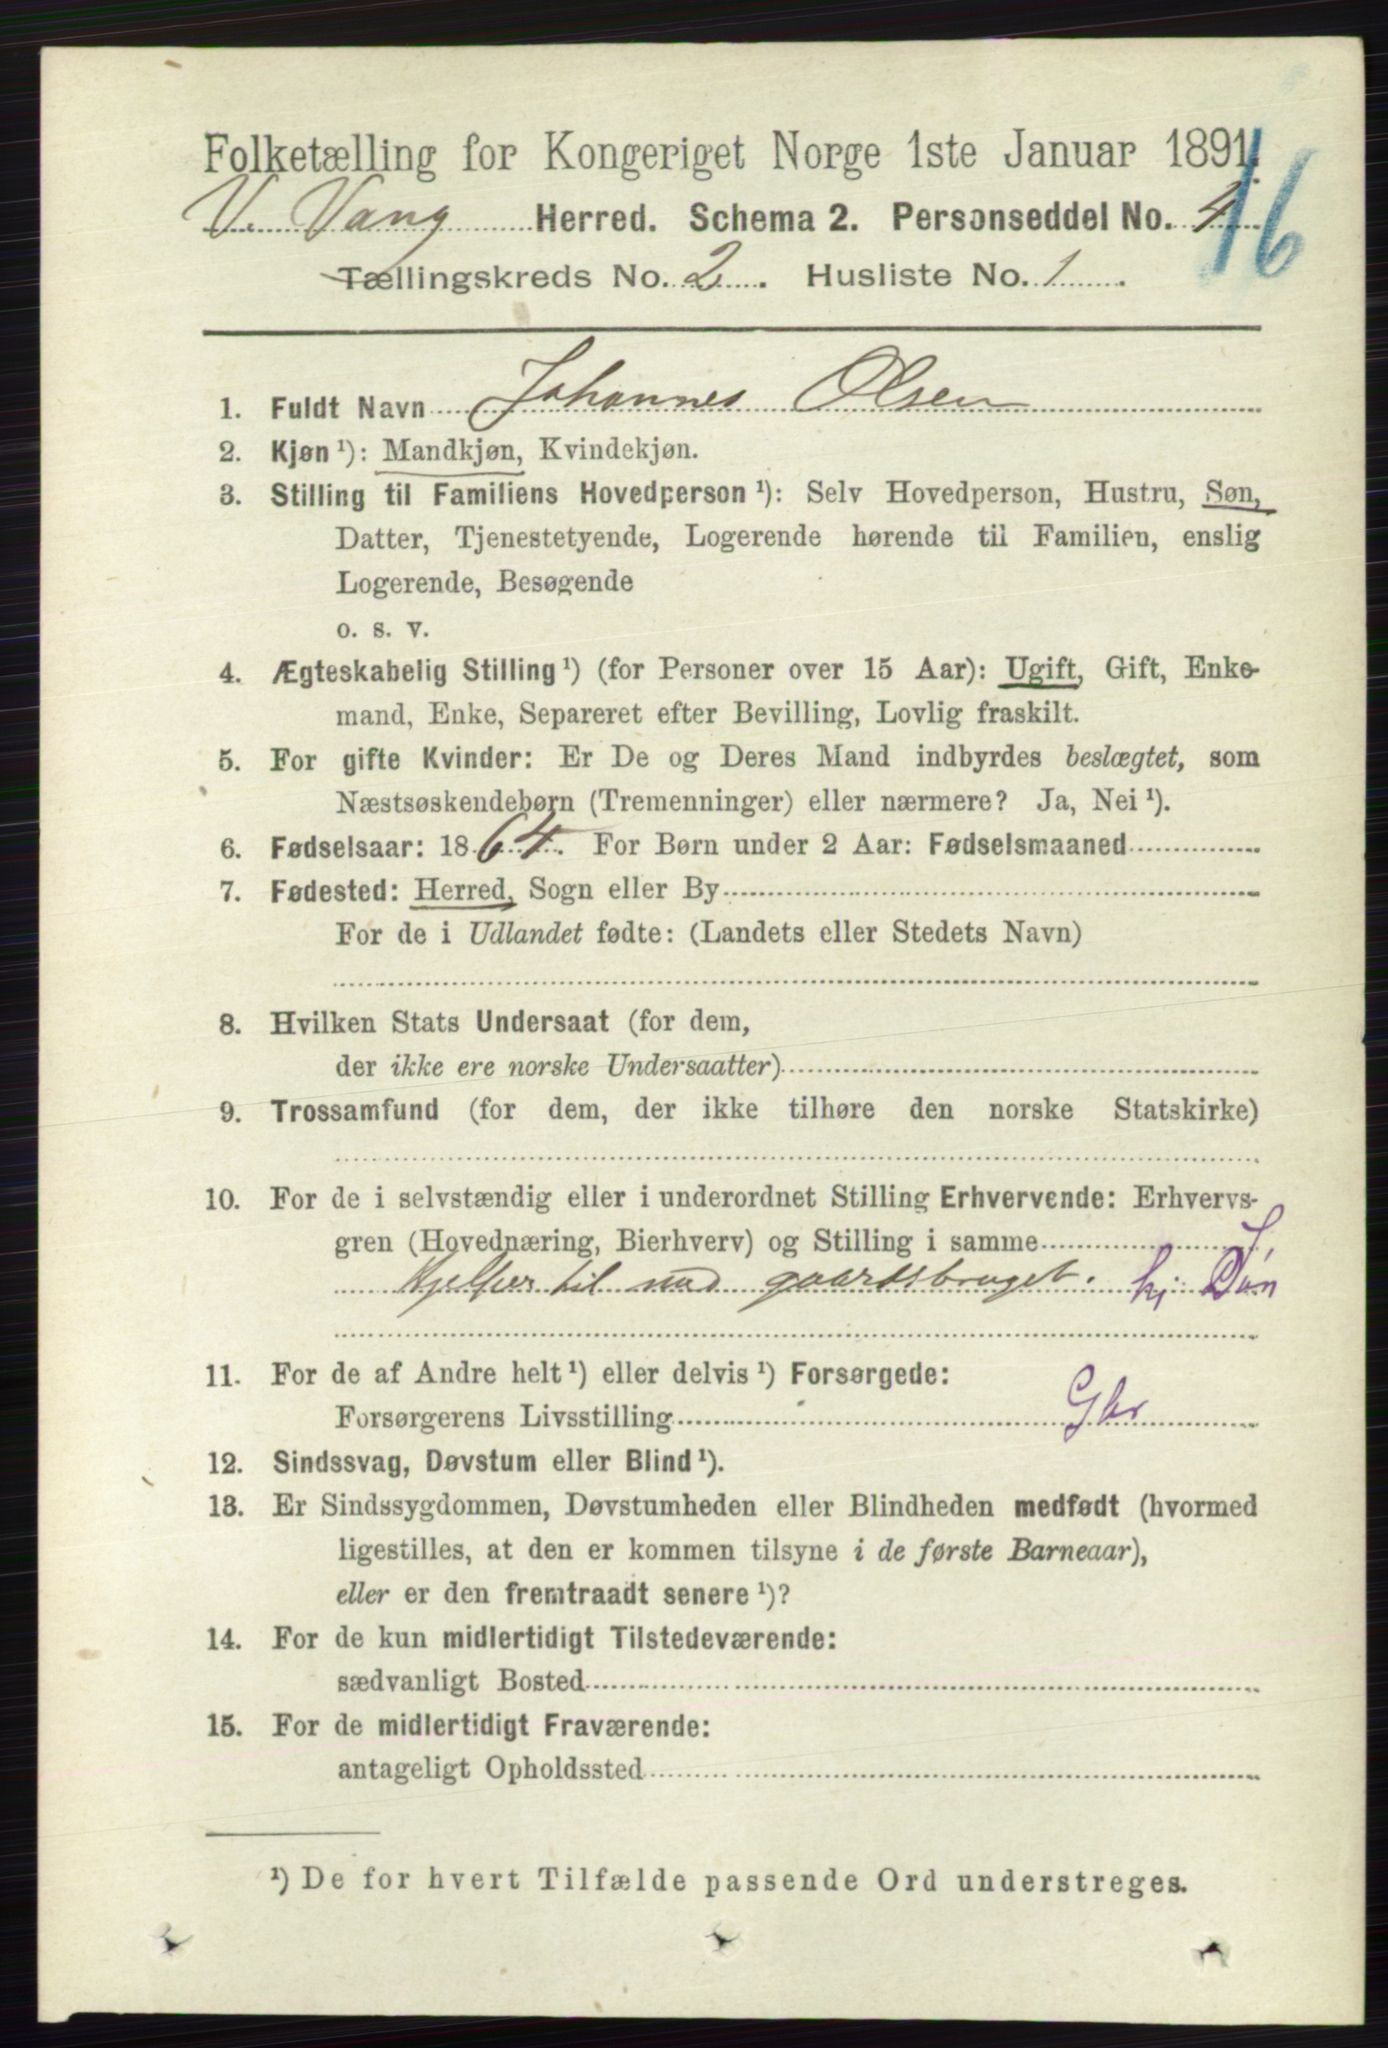 Folketælling for Kongeriget Norge 1ste Januar 1891.
16
V. Vang Herred. Schema 2. Personseddel No. 4
Tællingskreds No. 2. Husliste No. 1.
1. Fuldt Navn Johannes Olsen
2. Kjøn ¹): Mandkjøn, Kvindekjøn.
3. Stilling til Familiens Hovedperson ¹): Selv Hovedperson, Hustru, Søn,
Datter, Tjenestetyende, Logerende hørende til Familien, enslig
Logerende, Besøgende
o. s. v.
4. Ægteskabelig Stilling ¹) (for Personer over 15 Aar): Ugift, Gift, Enke-
mand, Enke, Separeret efter Bevilling, Lovlig fraskilt.
5. For gifte Kvinder: Er De og Deres Mand indbyrdes beslægtet, som
Næstsøskendebørn (Tremenninger) eller nærmere? Ja, Nei ¹).
6. Fødselsaar: 1864. For Børn under 2 Aar: Fødselsmaaned
7. Fødested: Herred, Sogn eller By
For de i Udlandet fødte: (Landets eller Stedets Navn)
8. Hvilken Stats Undersaat (for dem,
der ikke ere norske Undersaatter)
9. Trossamfund (for dem, der ikke tilhøre den norske Statskirke)
10. For de i selvstændig eller i underordnet Stilling Erhvervende: Erhvervs-
gren (Hovednæring, Bierhverv) og Stilling i samme
Hjelper til med gaardsbruget. hj. Søn
11. For de af Andre helt ¹) eller delvis ¹) Forsørgede:
Forsørgerens Livsstilling Gbr
12. Sindssvag, Døvstum eller Blind ¹).
13. Er Sindssygdommen, Døvstumheden eller Blindheden medfødt (hvormed
ligestilles, at den er kommen tilsyne i de første Barneaar),
eller er den fremtraadt senere ¹)?
14. For de kun midlertidigt Tilstedeværende:
sædvanligt Bosted
15. For de midlertidigt Fraværende:
antageligt Opholdssted
¹) De for hvert Tilfælde passende Ord understreges.